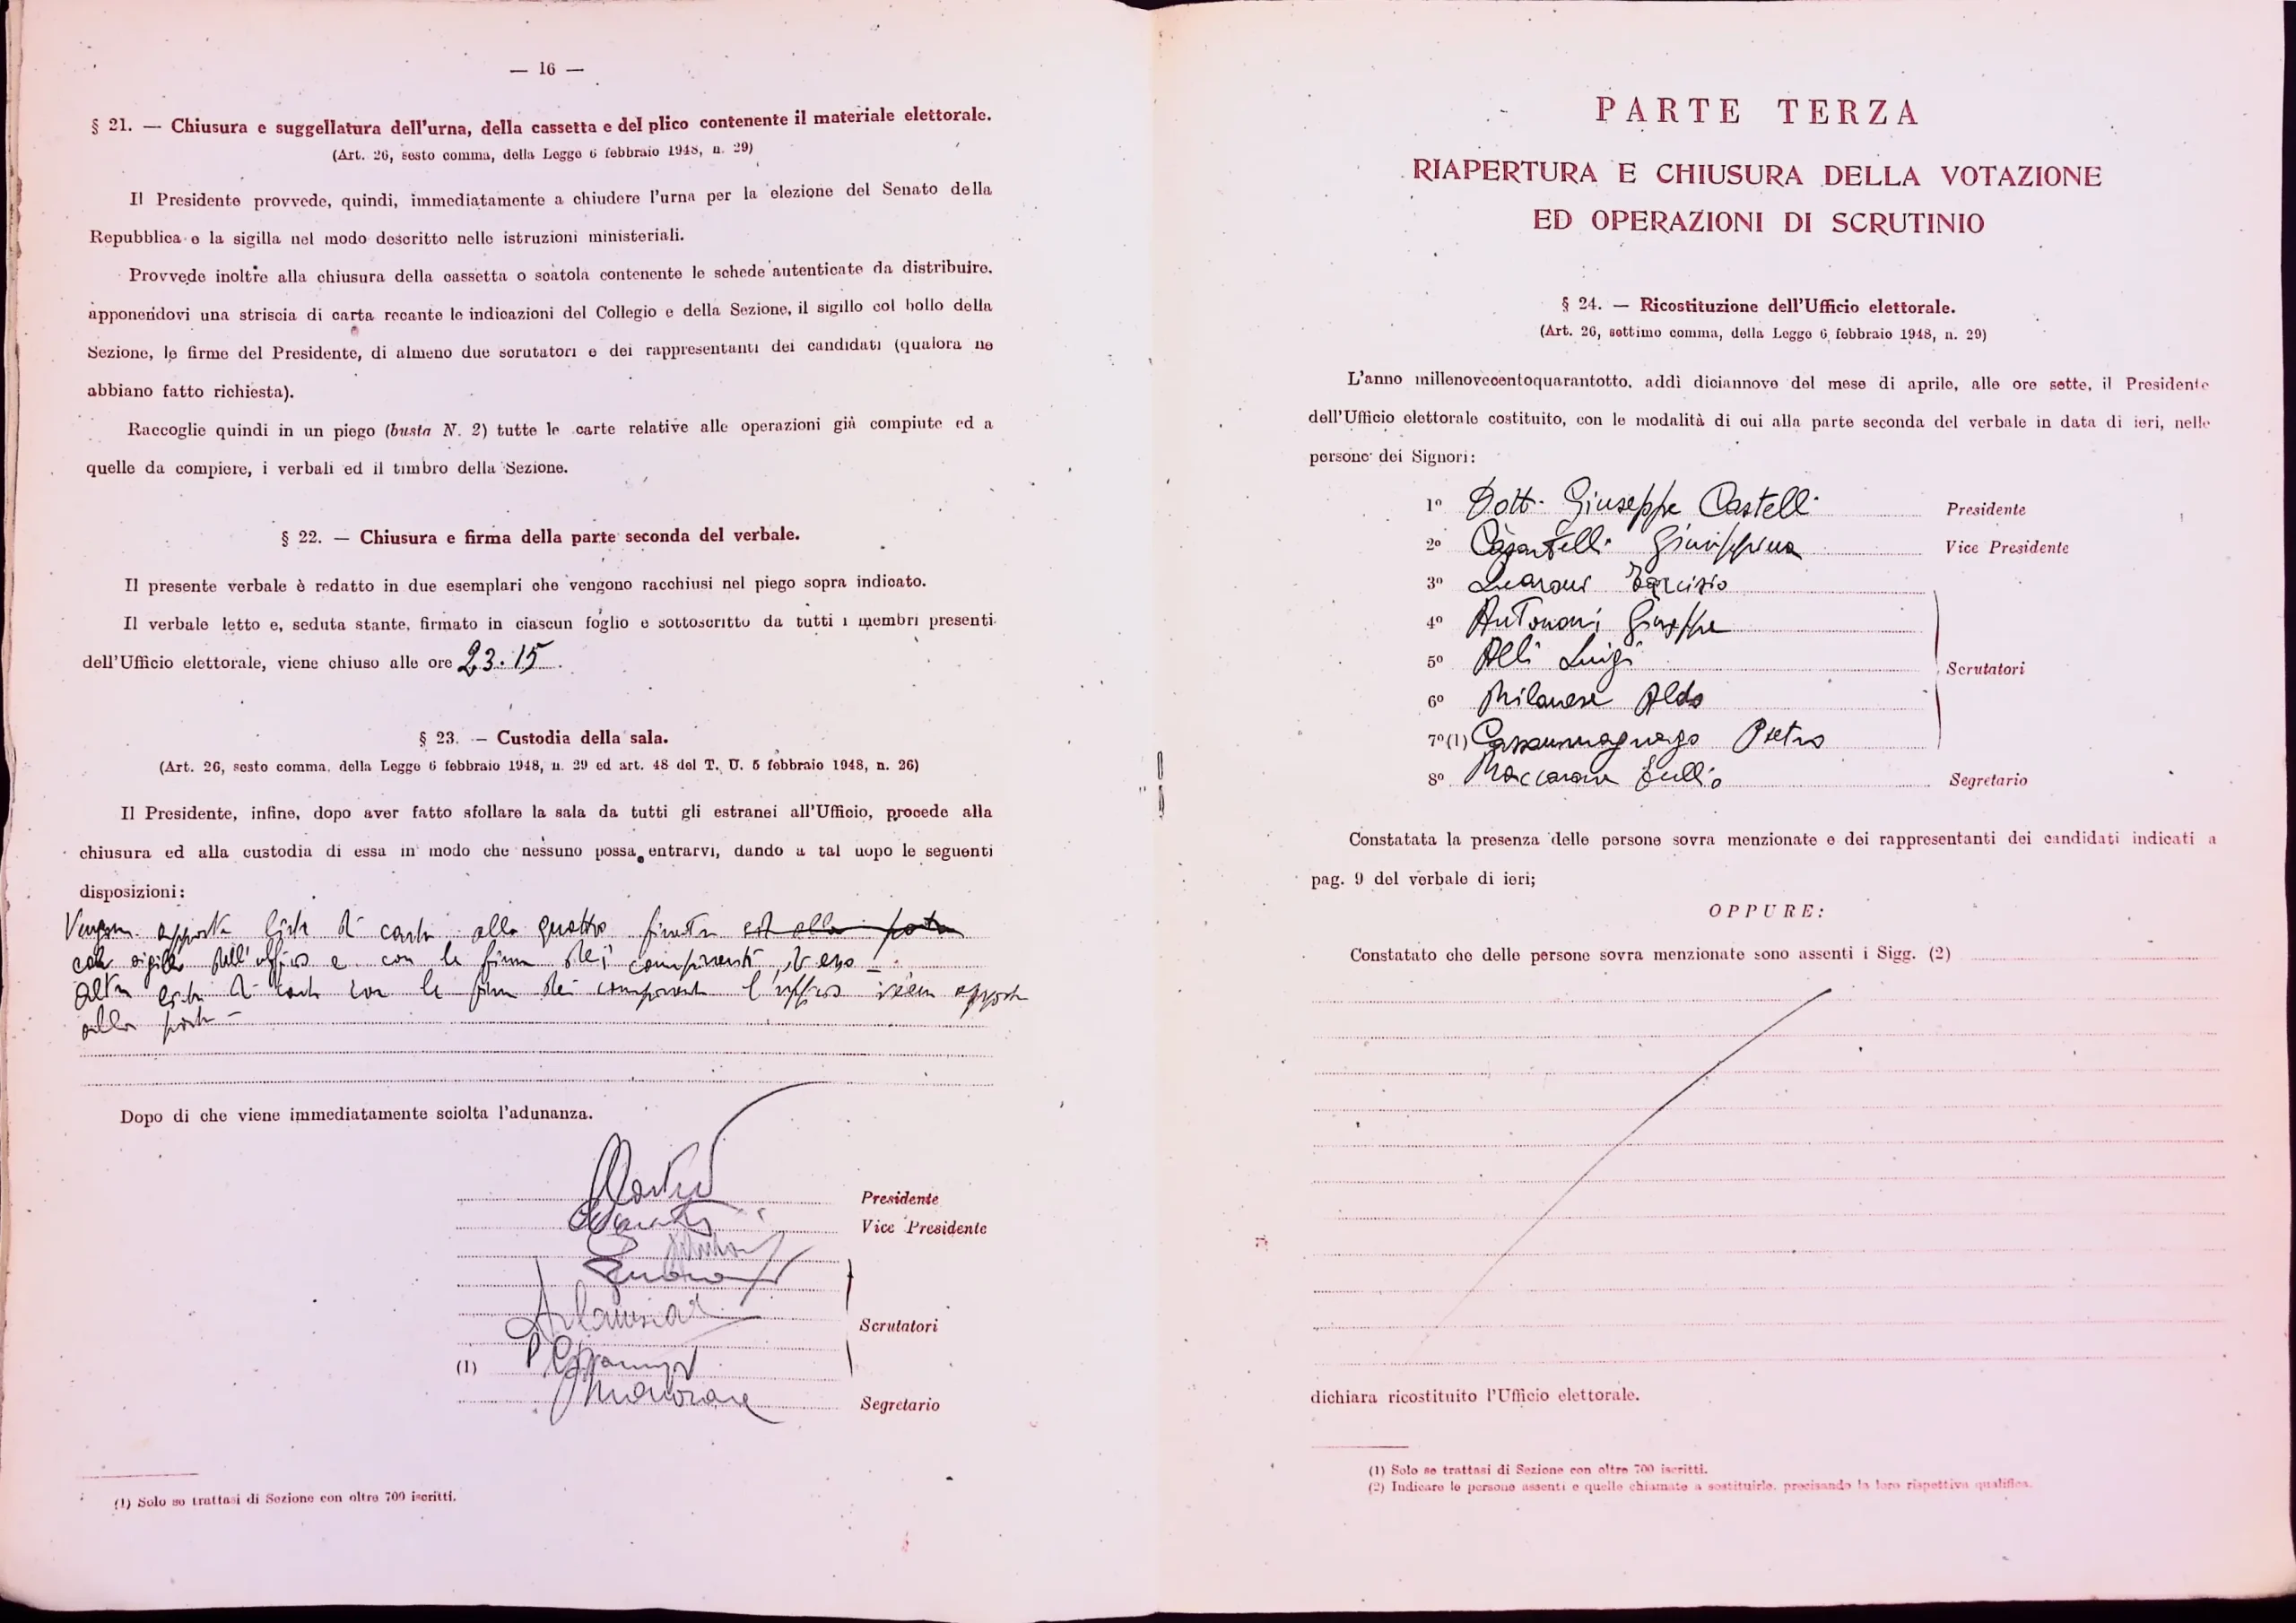 — 16 —
§ 21. — Chiusura e suggellatura dell'urna, della cassetta e del plico contenente il materiale elettorale.
(Art. 26, sesto comma, della Legge 6 febbraio 1948, n. 29)
Il Presidente provvede, quindi, immediatamente a chiudere l'urna per la elezione del Senato della
Repubblica e la sigilla nel modo descritto nelle istruzioni ministeriali.
Provvede inoltre alla chiusura della cassetta o scatola contenente le schede autenticate da distribuire,
apponendovi una striscia di carta recante le indicazioni del Collegio e della Sezione, il sigillo col bollo della
Sezione, le firme del Presidente, di almeno due scrutatori e dei rappresentanti dei candidati (qualora ne
abbiano fatto richiesta).
Raccoglie quindi in un piego (busta N. 2) tutte le carte relative alle operazioni già compiute ed a
quelle da compiere, i verbali ed il timbro della Sezione.
§ 22. — Chiusura e firma della parte seconda del verbale.
Il presente verbale è redatto in due esemplari che vengono racchiusi nel piego sopra indicato.
Il verbale letto e, seduta stante, firmato in ciascun foglio e sottoscritto da tutti i membri presenti
dell'Ufficio elettorale, viene chiuso alle ore 23.15.
§ 23. — Custodia della sala.
(Art. 26, sesto comma, della Legge 6 febbraio 1948, n. 29 ed art. 48 del T. U. 5 febbraio 1948, n. 26)
Il Presidente, infine, dopo aver fatto sfollare la sala da tutti gli estranei all'Ufficio, procede alla
chiusura ed alla custodia di essa in modo che nessuno possa entrarvi, dando a tal uopo le seguenti
disposizioni:
di carta alle quattro
dell'ufficio e con le firme dei componenti di esso —
di carta con le firme dei componenti l'ufficio viene
alla porta —
Dopo di che viene immediatamente sciolta l'adunanza.
Presidente
Vice Presidente
Scrutatori
(1)
Segretario
(1) Solo se trattasi di Sezione con oltre 700 iscritti.
PARTE TERZA
RIAPERTURA E CHIUSURA DELLA VOTAZIONE
ED OPERAZIONI DI SCRUTINIO
§ 24. — Ricostituzione dell'Ufficio elettorale.
(Art. 26, settimo comma, della Legge 6 febbraio 1948, n. 29)
L'anno millenovecentoquarantotto, addì diciannove del mese di aprile, alle ore sette, il Presidente
dell'Ufficio elettorale costituito, con le modalità di cui alla parte seconda del verbale in data di ieri, nelle
persone dei Signori:
1º Dott. Giuseppe Castelli Presidente
2º Casartelli Giuseppina Vice Presidente
3º Tarcisio
4º Antonini Giuseppe
5º Alli Luigi
Scrutatori
6º Milanese Aldo
7º (1) Cassanmagnago Pietro
8º Maccarone Tullio Segretario
Constatata la presenza delle persone sovra menzionate e dei rappresentanti dei candidati indicati a
pag. 9 del verbale di ieri;
OPPURE:
Constatato che delle persone sovra menzionate sono assenti i Sigg. (2)
dichiara ricostituito l'Ufficio elettorale.
(1) Solo se trattasi di Sezione con oltre 700 iscritti.
(2) Indicare le persone assenti e quelle chiamate a sostituirle, precisando la loro rispettiva qualifica.